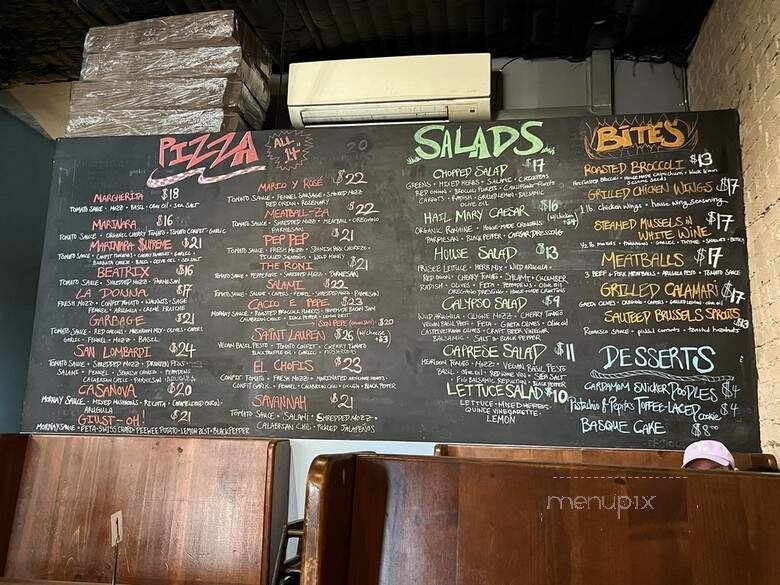 PIZZA
ALL 14"
MARGHERITA $18
TOMATO SAUCE • FRESH MOZZ • BASIL • OLIVE OIL • SEA SALT
MARINARA $16
TOMATO SAUCE • ORGANIC CHERRY TOMATO • TOMATO CONFIT • GARLIC
MARINARA SUPREME $21
BEATRIX $16
TOMATO SAUCE • SHREDDED MOZZ • PARMESAN
LA DONNA $17
FRESH MOZZ • CONFIT TOMATO • WALNUTS • SAGE
FENNEL • ARUGULA • CREME FRAICHE
GARBAGE $21
GARLIC • FENNEL • BASIL
SAN LOMBARDI $24
TOMATO SAUCE • SHREDDED MOZZ •
CALABRIAN CHILI • PARMESAN
CASANOVA $20
MORNAY SAUCE • MIXED MUSHROOMS • RICOTTA • CARAMELIZED ONION
ARUGULA
GIUST-OH! $21
MORNAY SAUCE • FETA • SWISS CHARD • PEEWEE POTATO • LEMON ZEST • BLACK PEPPER
MARIO Y ROSE $22
TOMATO SAUCE • FENNEL SAUSAGE • SHREDDED MOZZ
RED ONION • ROSEMARY
MEATBALL-ZA $22
TOMATO SAUCE • SHREDDED MOZZ • MEATBALL • OREGANO
PARMESAN
PEP PEP $21
PICKLED JALAPEÑOS • WILD HONEY
THE RONI $21
TOMATO SAUCE • PEPPERONI • SHREDDED MOZZ • PARMESAN
SALAMI $22
TOMATO SAUCE • SALAMI • CAPERS • FENNEL • SHREDDED MOZZ • PARMESAN
CACIO E PEPE $23
$20
SAINT LAUREN $26
VEGAN BASIL PESTO • TOMATO CONFIT • CHERRY TOMATO
BLACK TRUFFLE OIL • GARLIC • MUSHROOMS
EL CHOFIS $23
CONFIT TOMATO • FRESH MOZZ • MARINATED ARTICHOKE HEARTS
CONFIT GARLIC • FENNEL • CALABRIAN CHILI • ONION • BLACK PEPPER
SAVANNAH $21
TOMATO SAUCE • SALAMI • SHREDDED MOZZ
CALABRIAN CHILI • PICKLED JALAPEÑOS
SALADS
CHOPPED SALAD $17
GREENS • MIXED HERBS • SALAMI • CHICKPEAS
RED ONION • BROCCOLI FLORETS • CAULIFLOWER FLORETS
CARROTS • RADISH • GRILLED LEMON • BALSAMIC
OLIVE OIL
HAIL MARY CAESAR $16
ORGANIC ROMAINE • HOUSE-MADE CROUTONS
PARMESAN • BLACK PEPPER • CAESAR DRESSING
HOUSE SALAD $13
FRISEE LETTUCE • HERB MIX • WILD ARUGULA
RED ONION • CHERRY TOMATO • SHALLOT • CUCUMBER
RADISH • OLIVES • FETA • PEPPERONCINI • OLIVE OIL
OREGANO DRESSING • HOUSE-MADE CROUTONS
CALYPSO SALAD $9
WILD ARUGULA • QUINOA MIX • CHERRY TOMATO
VEGAN BASIL PESTO • FETA • GAETA OLIVES • OLIVE OIL
CASTELVETRANO OLIVES • CRAFT BEER VINEGAR
BALSAMIC • SALT & BLACK PEPPER
CAPRESE SALAD $11
HEIRLOOM TOMATO • MOZZ • VEGAN BASIL PESTO
BASIL • OLIVE OIL • RED WINE VIN • SEA SALT
FIG BALSAMIC REDUCTION • BLACK PEPPER
LETTUCE SALAD $10
LETTUCE • MIXED HERBS •
QUINCE VINEGARETTE
LEMON
BITES
ROASTED BROCCOLI $13
GRILLED CHICKEN WINGS $17
1 lb. chicken wings • house wing seasoning
STEAMED MUSSELS IN
WHITE WINE $17
MEATBALLS $17
3 BEEF & PORK MEATBALLS • ARUGULA PESTO • TOMATO SAUCE
GRILLED CALAMARI $17
SAUTEED BRUSSELS SPROUTS $13
Romesco sauce • pickled currants • toasted hazelnuts
DESSERTS
CARDAMOM SNICKER DOODLES $4
Pistachio & Pepitas TOFFEE-LACED cookie $4
BASQUE CAKE $8.00
menupix